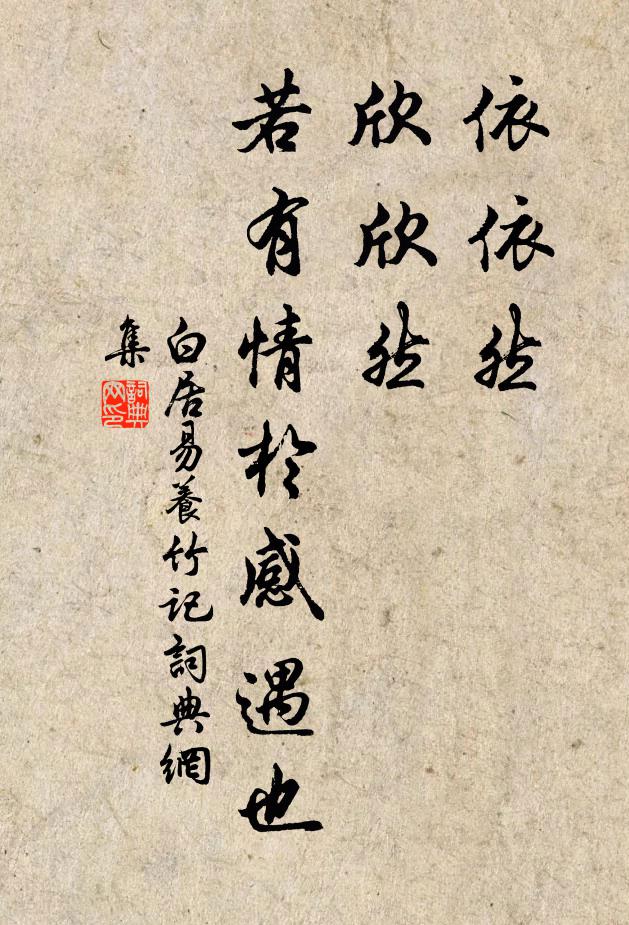 依依然
欣欣然
若有情於感遇也
白居易養竹记詞典網
集
詞典
网印